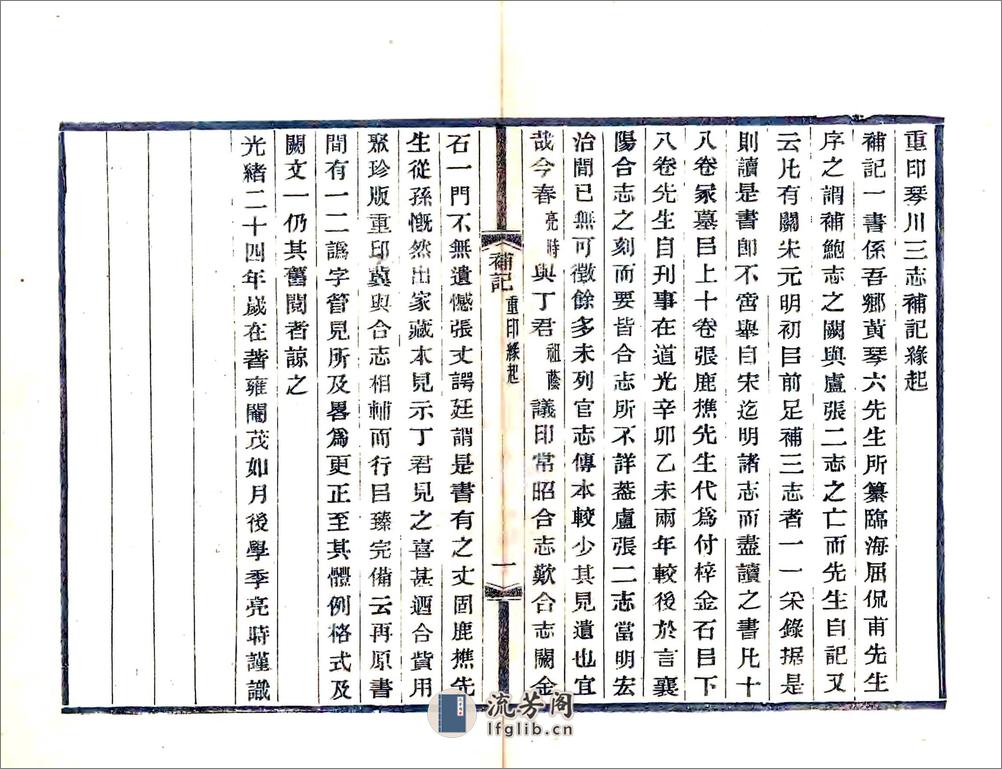 重印琴川三志補記緣起
補記一書係吾鄉黃琴六先生所纂臨海屈侃甫先生
序之謂補鮑志之闕與盧張二志之亡而先生自記又
云凡有關宋元明初㠯前足補三志者一一采錄据是
則讀是書卽不啻舉自宋迄明諸志而盡讀之書凡十
八卷冢墓㠯上十卷張鹿樵先生代爲付梓金石㠯下
八卷先生自刊事在道光辛卯乙未兩年較後於言襄
陽合志之刻而要皆合志所不詳葢盧張二志當明宏
治閒已無可徵餘多未列官志傳本較少其見遺也宜
哉今春亮時與丁君祖蔭議印常昭合志歎合志闕金
補記 重印緣起 一
石一門不無遺憾張丈諤廷謂是書有之丈固鹿樵先
生從孫慨然出家藏本見示丁君見之喜甚迺合貲用
聚珍版重印冀與合志相輔而行㠯臻完備云再原書
間有一二譌字管見所及畧爲更正至其體例格式及
闕文一仍其舊閱者諒之
光緒二十四年歲在著雍閹茂如月後學季亮時謹識
流芳阁
lfglib.cn